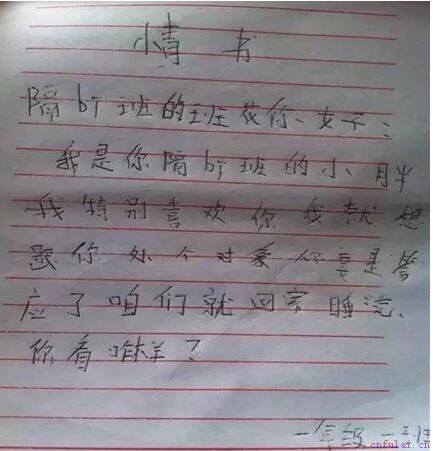 情书
隔bì班的班花你女子:
我是你隔bì班的小月半
我特别喜欢你我就想
跟你处个对象你要是答
应了咱们就回家睡
你看咋样?
一年级一班
cnfulai.cn